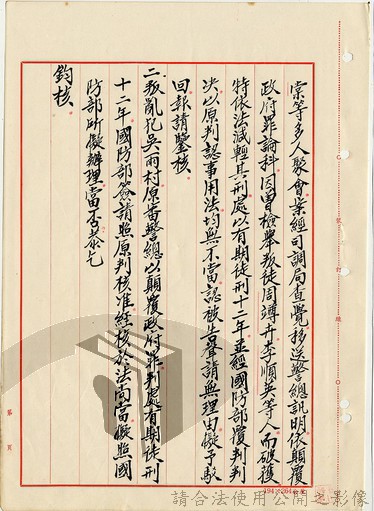 棠等多人聚會案經司調局查覺移送警總訊明依顛覆
政府罪論科因曾檢舉叛徒周靖卉李順英等人而破獲
特依法減輕其刑處以有期徒刑十二年並經國防部覆判判
決以原判認事用法均無不當認被告聲請無理由儗予駁
回報請鑒核
二、叛亂犯吳雨村原審警總以顛覆政府罪判處有期徒刑
十二年國防部簽請照原判核准經核於法尚當儗照國
防部所儗辦理當否恭乞
鈞核
第 頁
請合法使用公開之影像